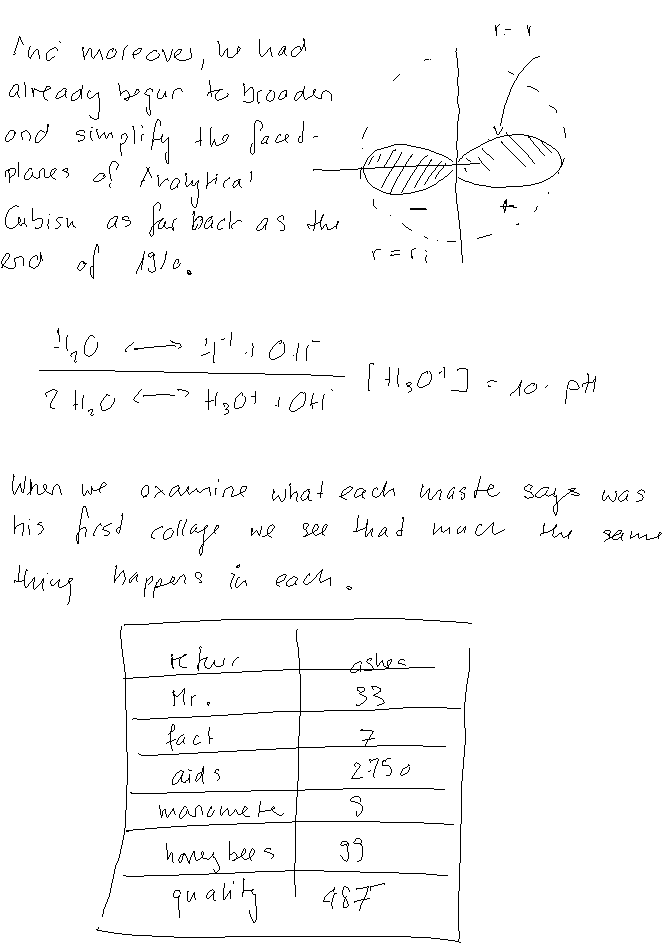 And moreover, he had
already begun to broaden
and simplify the facet-
planes of Analytical
Cubism as far back as the
end of 1910.
r = r
- +
r = ri
H₂O ⟷ H⁺ + OH⁻
2 H₂O ⟷ H₃O⁺ + OH⁻ [H₃O⁺] = 10- pH
When we examine what each master says was
his first collage we see that much the same
thing happens in each.
ashes
Mr. 33
fact 7
aids 2750
manometer 9
honeybees 99
quality 487